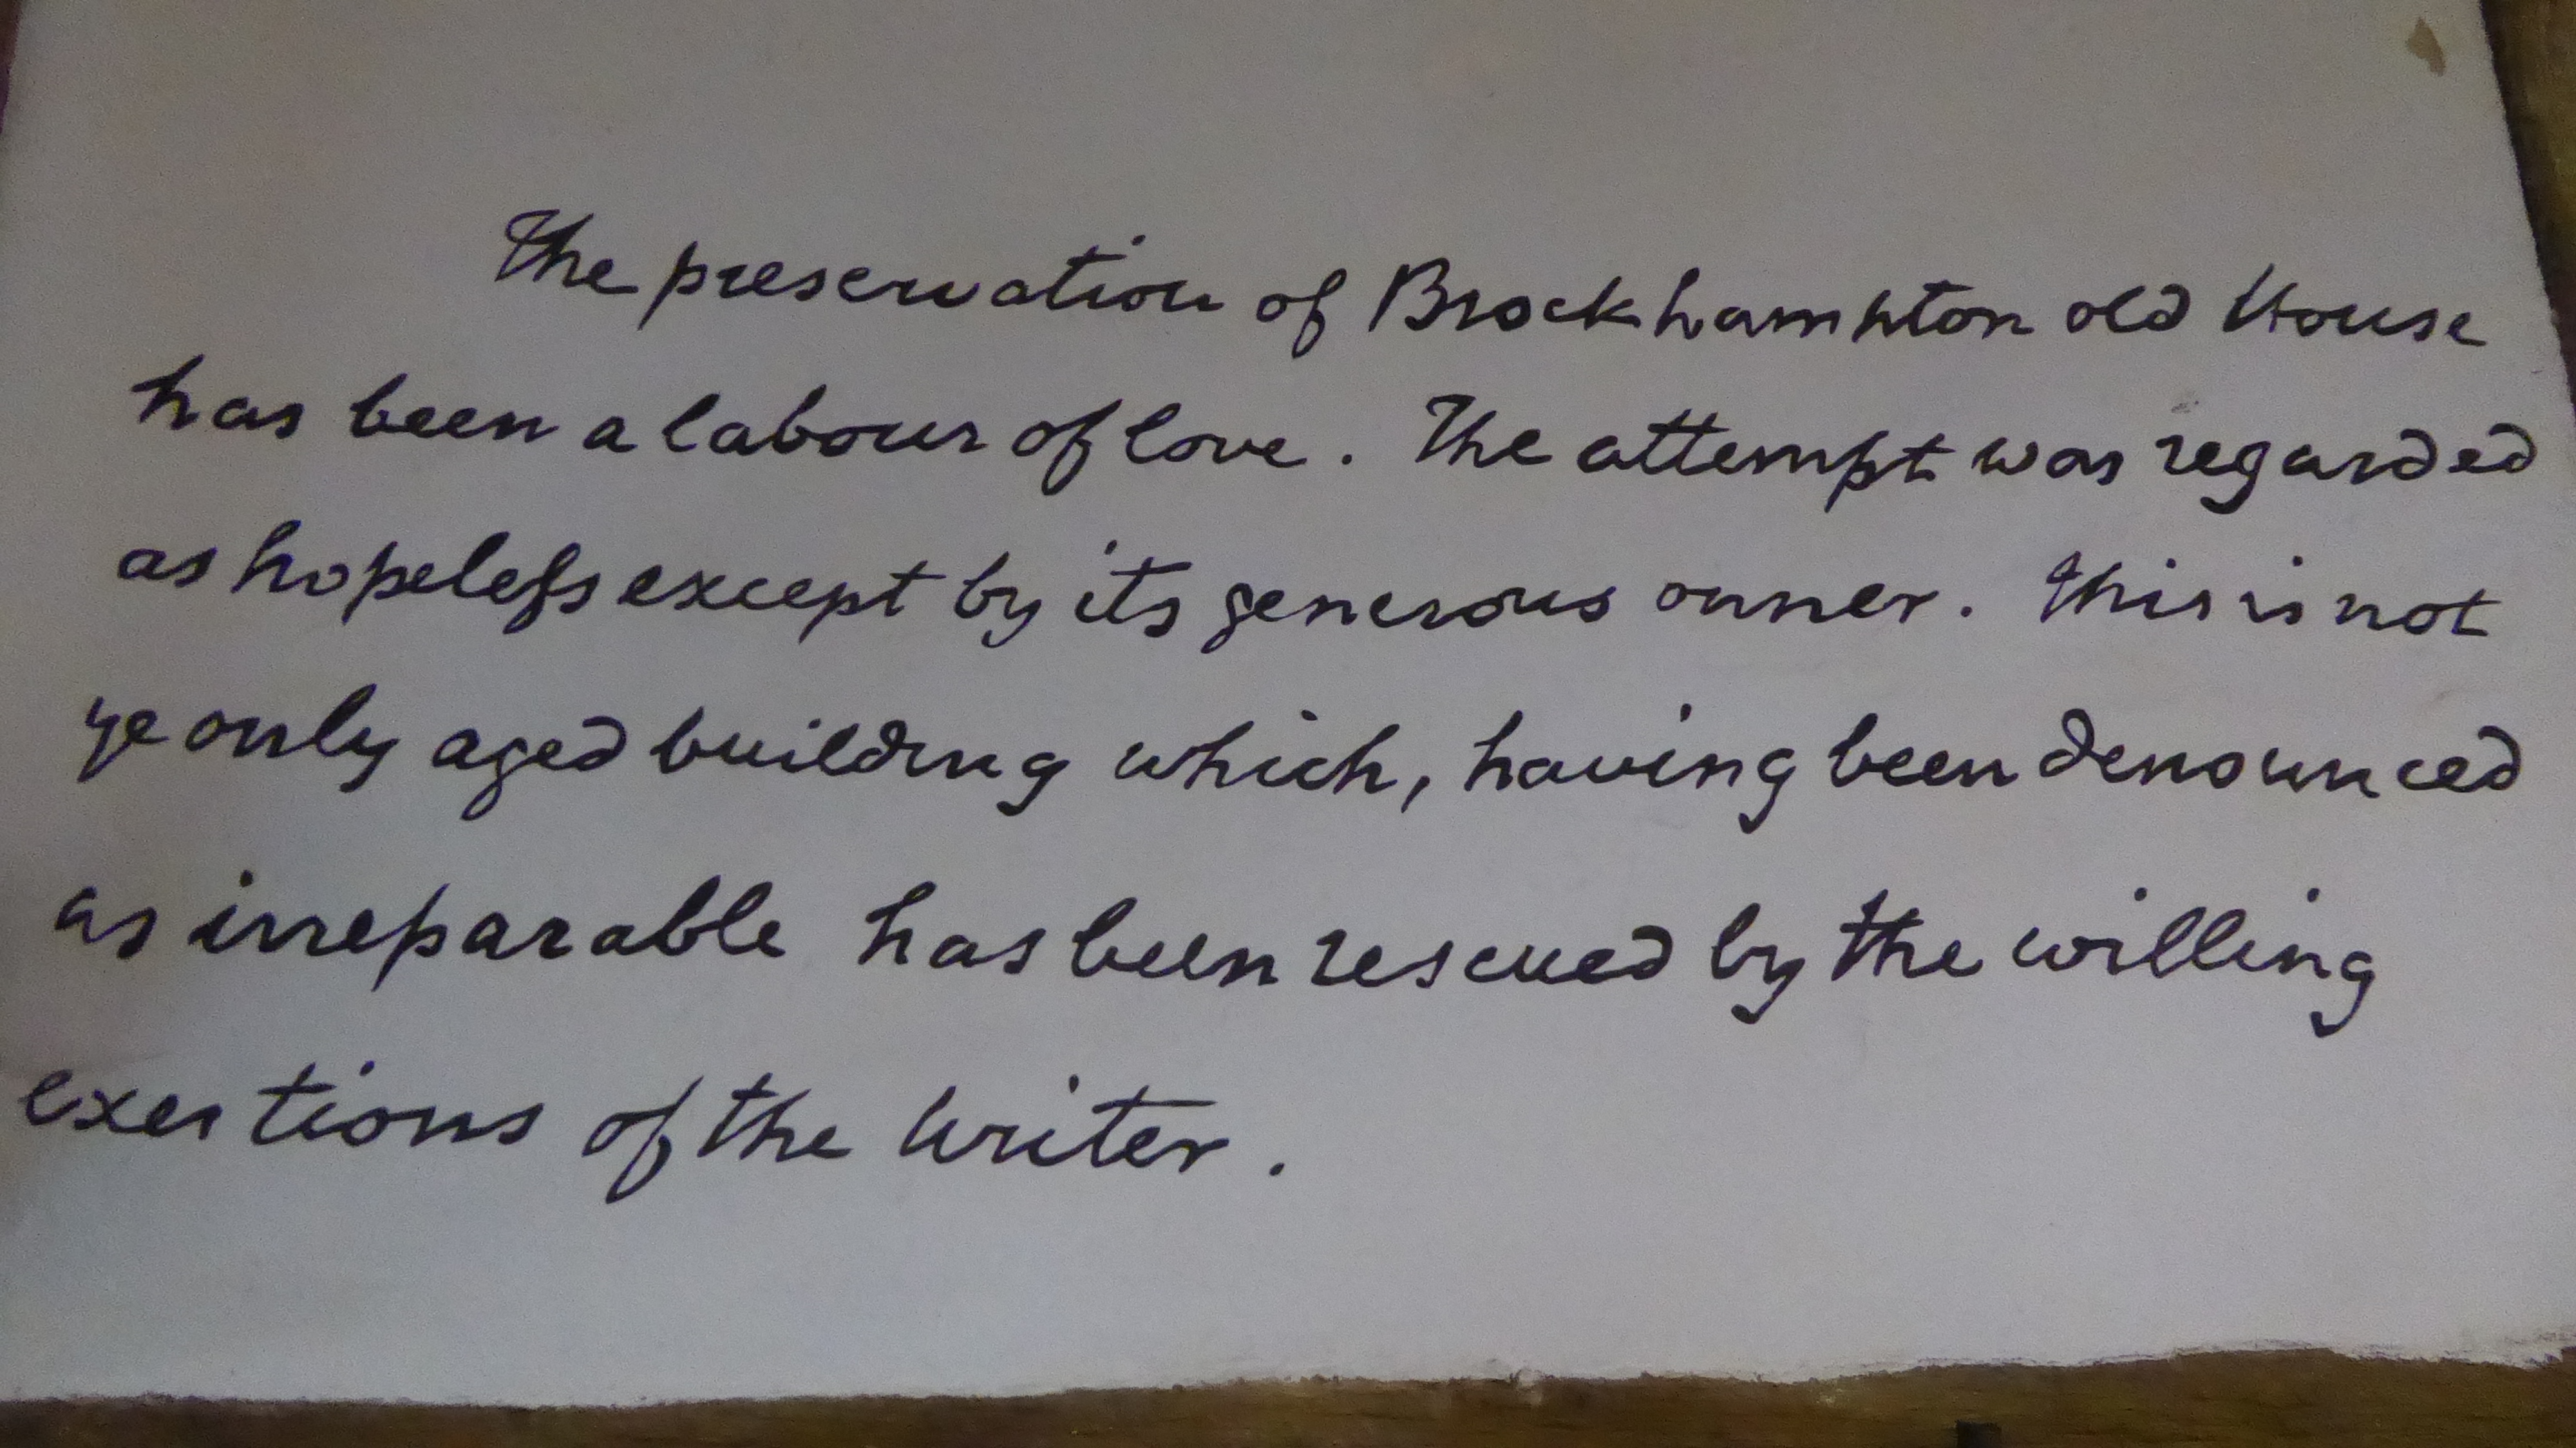 The preservation of Brockhampton old House
has been a labour of love. The attempt was regarded
as hopeleſs except by its generous owner. This is not
ye only aged building which, having been denounced
as irreparable has been rescued by the willing
exertions of the writer.